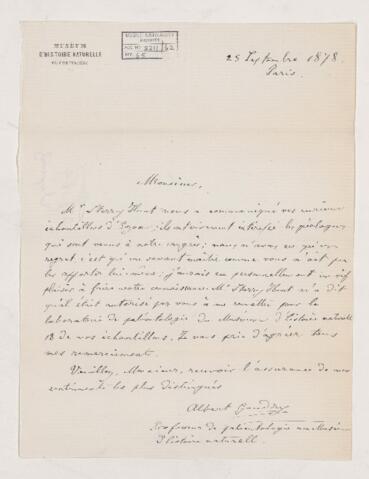 MUSÉUM
D'HISTOIRE NATURELLE
25 Septembre 1878.
Paris.
Monsieur,
Mr Sterry Hunt nous a communiqué vos curieux
échantillons d'Eozoon; ils ont vivement intéressé les géologues
qui sont venus à notre congrès; nous n'avons eu qu'un
regret: c'est qu'un savant comme vous n'ait pu
les apporter lui même; j'aurais eu personnellement un vif
plaisir à faire votre connaissance. Mr Sterry Hunt m'a dit
qu'il était autorisé par vous à me remettre pour le
laboratoire de paléontologie du Muséum d'histoire naturelle
13 de vos échantillons. Je vous prie d'agréer tous
mes remerciements.
Veuillez, Monsieur, recevoir l'assurance de mes
sentiments les plus distingués
Albert Gaudry
Professeur de paléontologie au Muséum
d'histoire naturelle.